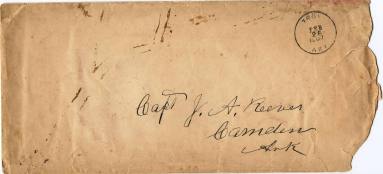 FEB
ARK
Capt J. A. Reeves
Camden
Ark